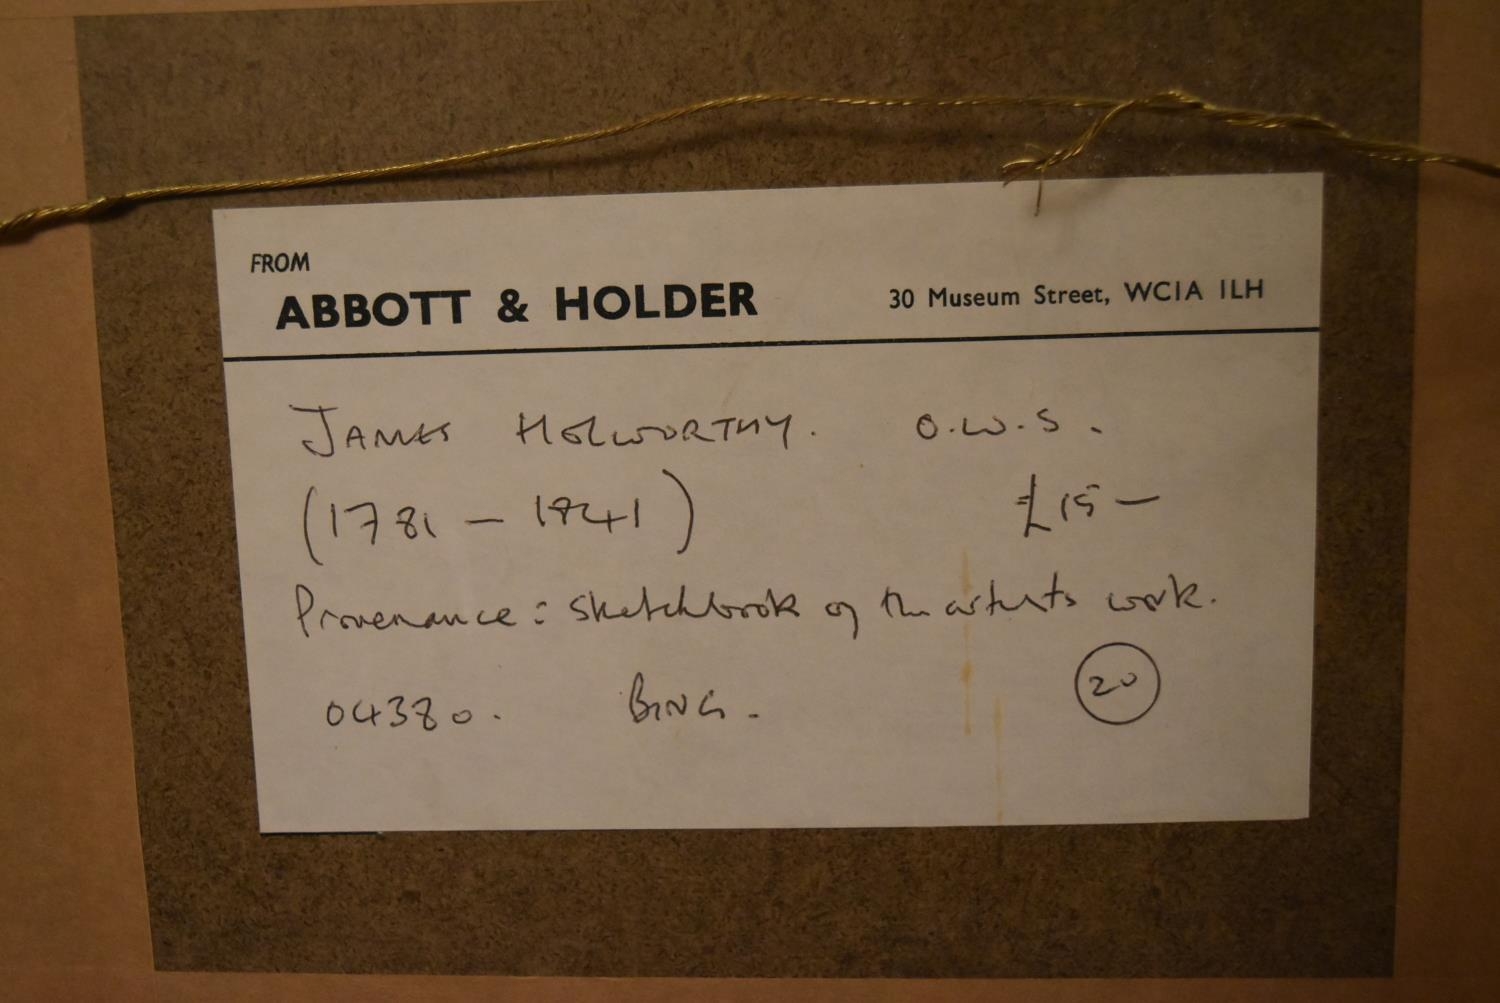 FROM
ABBOTT & HOLDER 30 Museum Street, WC1A 1LH
JAMES HOLWORTHY. O.W.S.
(1781 – 1841) £15 —
Provenance: Sketchbook of the artists work.
04380. BING.
20